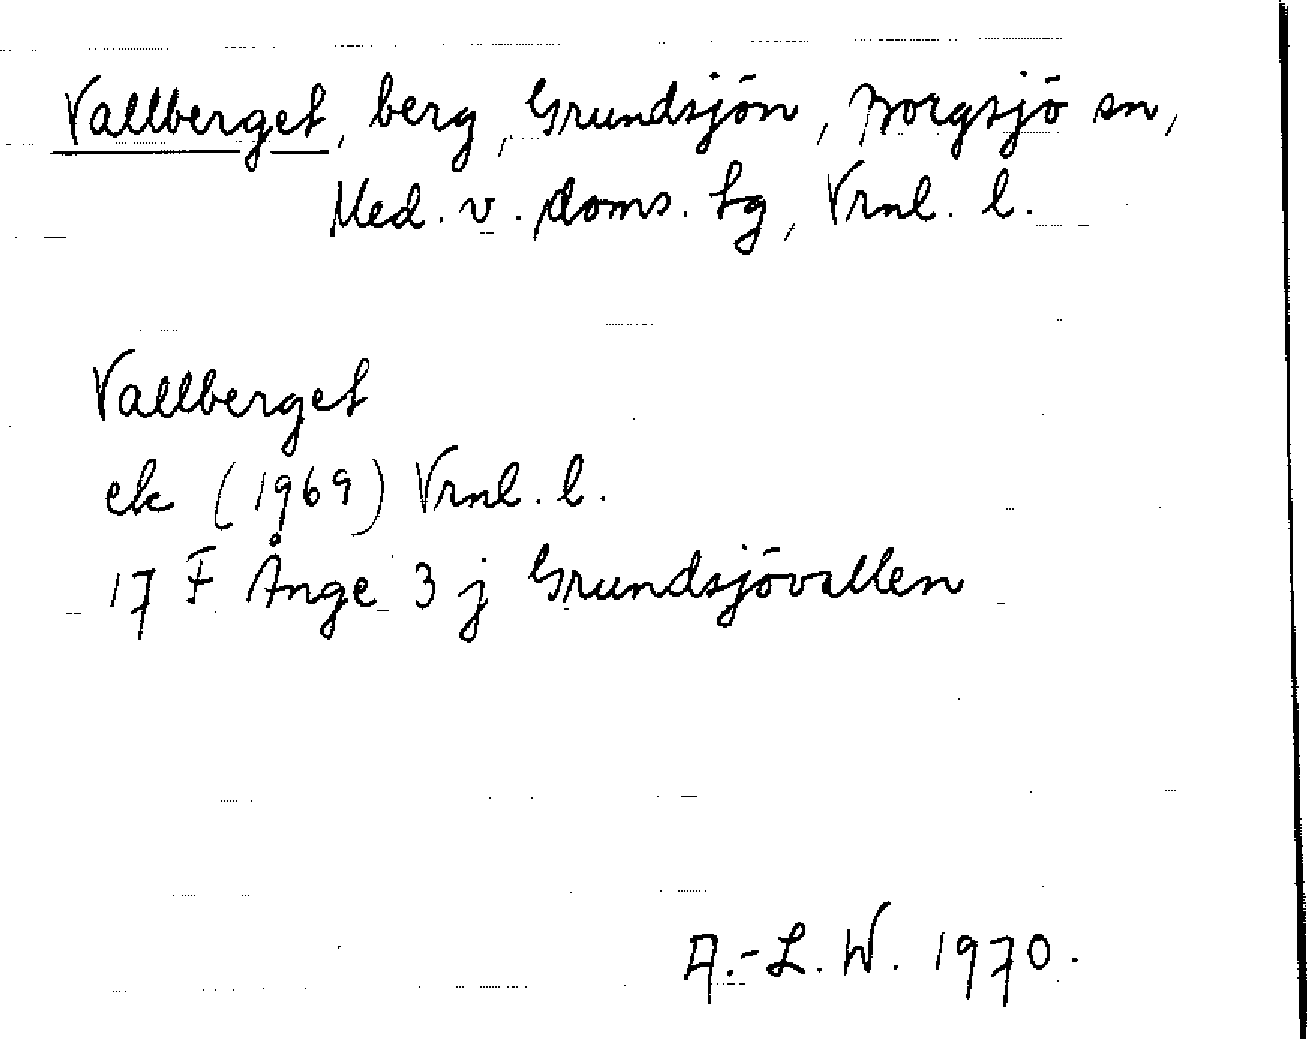 Vallberget, berg, Grundsjön, Borgsjö sn,
Med. v. doms. tg, Vrnl. l.
Vallberget
ek (1969) Vrnl. l.
17 F Ånge 3 j Grundsjövallen
A.-L. W. 1970.